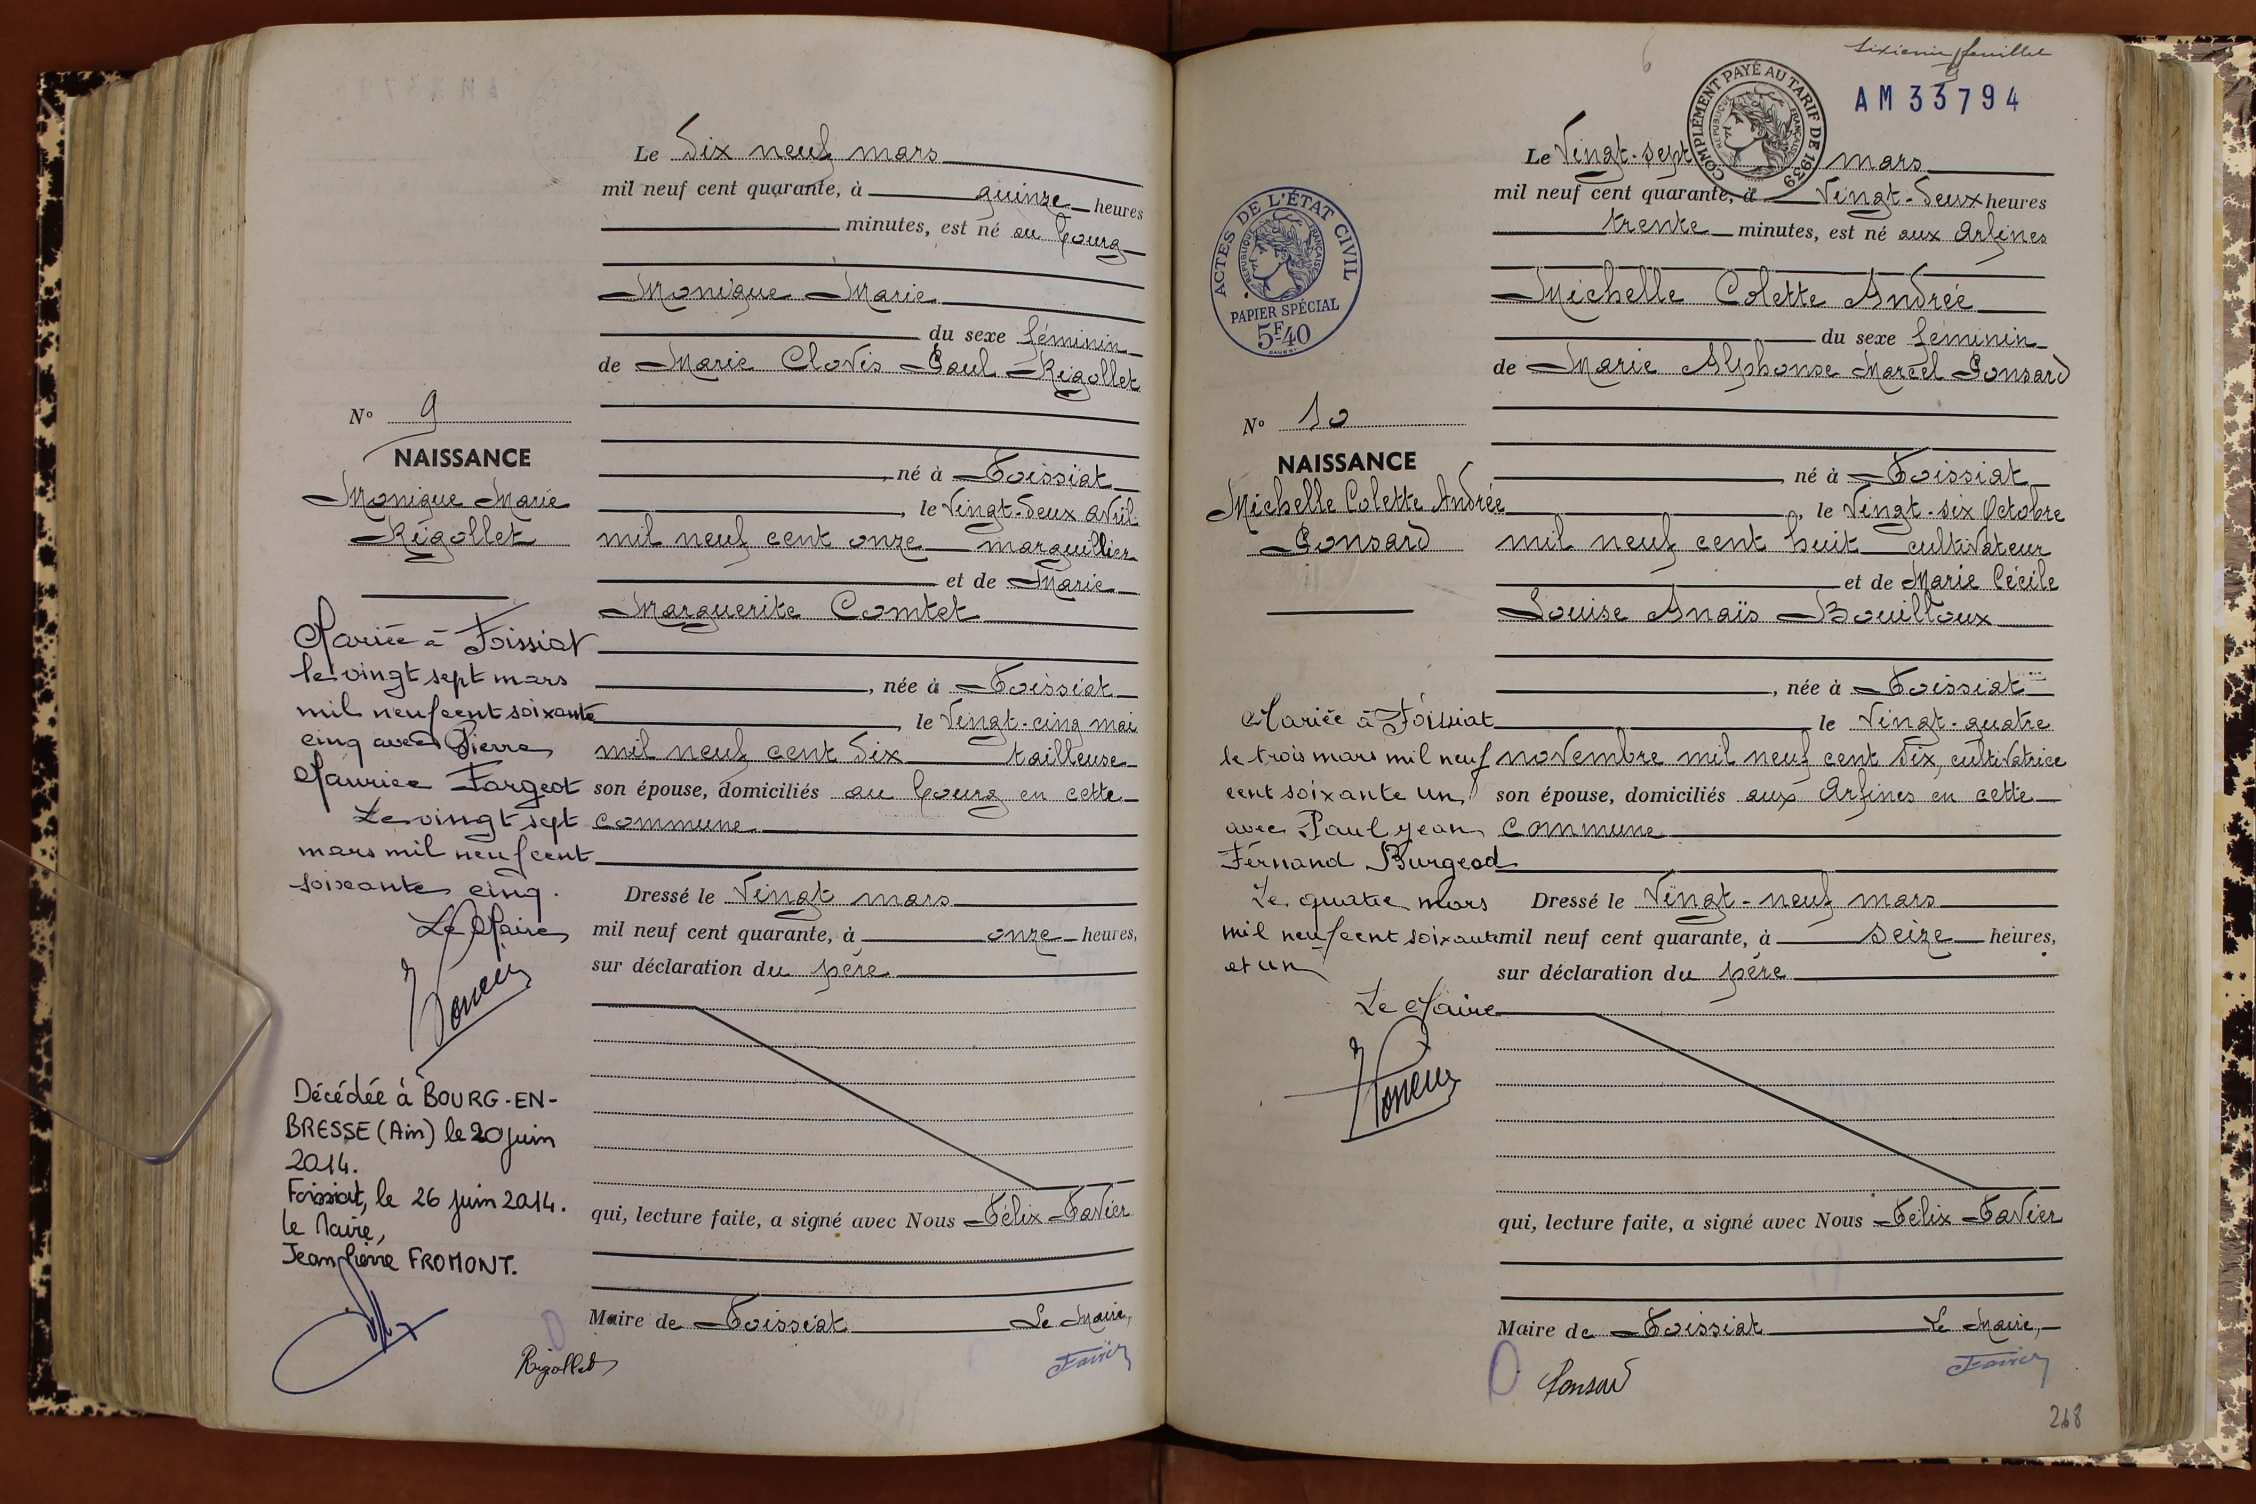 Le Dix neuf mars
mil neuf cent quarante, à quinze heures
minutes, est né au bourg
Monique Marie
du sexe féminin
de Marie Clovis Paul Rigollet
N° 9
NAISSANCE
Monique Marie
Rigollet
né à Foissiat
, le Vingt-deux avril
mil neuf cent onze marguillier
et de Marie
Marguerite Comtet
, née à Foissiat
, le Vingt-cinq mai
mil neuf cent six tailleuse
son épouse, domiciliés au bourg en cette
commune
Dressé le Vingt mars
mil neuf cent quarante, à onze heures,
sur déclaration du père
qui, lecture faite, a signé avec Nous Félix Favier
Maire de Foissiat Le Maire,
Rigollet Favier
Mariée à Foissiat
le vingt sept mars
mil neuf cent soixante
cinq avec Pierre
Maurice Fargeot
Le vingt sept
mars mil neuf cent
soixante cinq.
Le Maire
Décédée à BOURG-EN-
BRESSE (Ain) le 20 juin
2014.
Foissiat, le 26 juin 2014.
Le Maire,
Jean Pierre FROMONT.
sixième feuillet
6
AM 33794
COMPLÉMENT PAYÉ AU TARIF DE 1939
RÉPUBLIQUE FRANÇAISE
ACTES DE L'ÉTAT CIVIL
RÉPUBLIQUE FRANÇAISE
PAPIER SPÉCIAL
5F40
Le Vingt-sept mars
mil neuf cent quarante, à Vingt-deux heures
trente minutes, est né aux Arfines
Michelle Colette Andrée
du sexe féminin
de Marie Alphonse Marcel Ponsard
N° 10
NAISSANCE
Michelle Colette Andrée
Ponsard
né à Foissiat
, le Vingt-six Octobre
mil neuf cent huit cultivateur
et de Marie Cécile
Louise Anaïs Bouilloux
, née à Foissiat
le Vingt-quatre
novembre mil neuf cent six, cultivatrice
son épouse, domiciliés aux Arfines en cette
commune
Dressé le Vingt-neuf mars
mil neuf cent quarante, à seize heures,
sur déclaration du père
qui, lecture faite, a signé avec Nous Félix Favier
Maire de Foissiat Le Maire,
Ponsard Favier
Mariée à Foissiat
le trois mars mil neuf
cent soixante un
avec Paul Jean
Fernand Burgeod
Le quatre mars
mil neuf cent soixante
et un
Le Maire
268